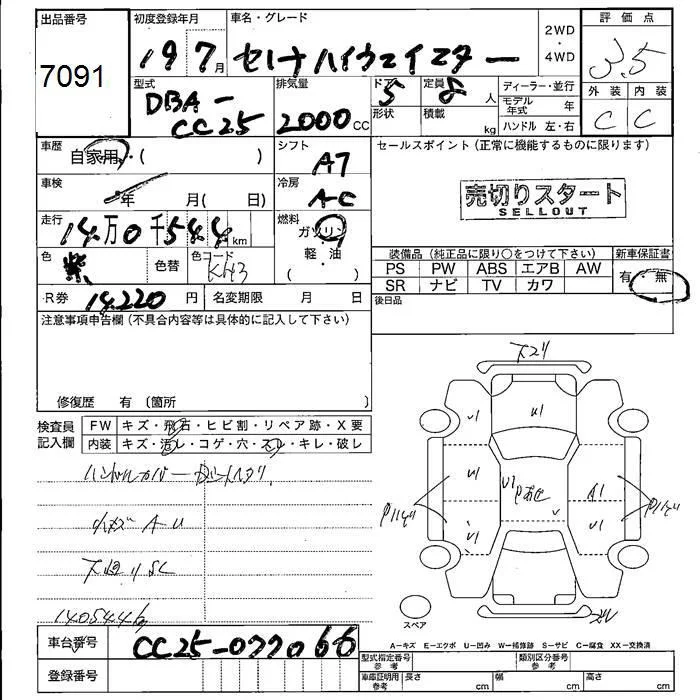 出品番号 初度登録年月 車名・グレード 2WD・4WD 評価点
7091 19 7月 セレナ ハイウェイスター 3.5
型式 排気量 ドア 定員 ディーラー・並行 外装 内装
DBA-CC25 2000cc 5 8人 モデル年式 年 C C
形状 積載 kg ハンドル 左・右
車歴 自家用・( ) シフト A7 セールスポイント(正常に機能するものに限ります)
車検 年 月( 日) 冷房 A-C 売切りスタート
SELLOUT
走行 14万0千544km 燃料 ガソリン
軽・油
( ・ )
色 紫 色替 色コード KH3
装備品(純正品に限り○をつけて下さい) 新車保証書
PS PW ABS エアB AW 有・無
SR ナビ TV カワ
R券 14,220円 名変期限 月 日 後日品
注意事項申告欄(不具合内容等は具体的に記入して下さい)
修復歴 有(箇所 )
検査員記入欄 FW キズ・飛石・ヒビ割・リペア跡・X要
内装 キズ・汚レ・コゲ・穴・スレ・キレ・破レ
ハンドルカバー
小キズ A U
下廻りSC
140544
下回り
U1
U1
U1
U1
U1
U1
A1
スペア
A-キズ E-エクボ U-凹み W-補修跡 S-サビ C-腐食 XX-交換済
車台番号 CC25-077066
登録番号
型式指定番号 参考 類別区分番号 参考
車庫証明用 参考 長さ cm 幅 cm 高さ cm